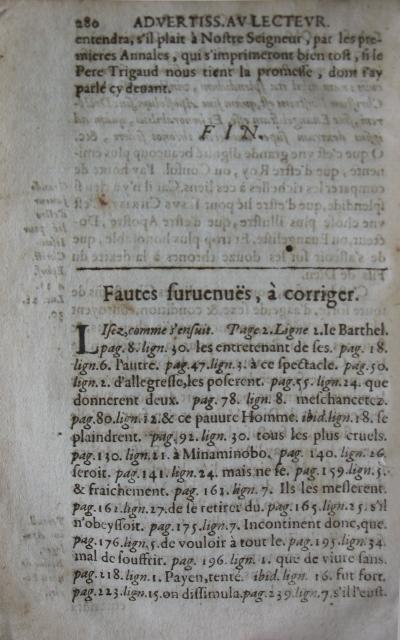 280 ADVERTISS. AV LECTEVR.
entendra, s'il plait à Nostre Seigneur, par les pre-
mieres Annales, qui s'imprimeront bien tost, si le
Pere Trigaud nous tient la promesse, dont i'ay
parlé cy deuant.
FIN.
Fautes suruenuës, à corriger.
LIsez, comme s'ensuit. Page 2. Ligne 2. le Barthel.
pag. 8. lign. 30. les entretenant de ses. pag. 18.
lign. 6. l'autre. pag. 47. lign. 3. à ce spectacle. pag. 50.
lign. 2. d'allegresse, les poserent. pag. 55. lign. 24. que
donnerent deux. pag. 78. lign. 8. meschancetez.
pag. 80. lign. 12. & ce pauure Homme. ibid. lign. 18. se
plaindrent. pag. 92. lign. 30. tous les plus cruels.
pag. 130. lign. 21. à Minaminobo. pag. 140. lign. 26.
seroit. pag. 141. lign. 24. mais ne se. pag. 159. lign. 5.
& fraichement. pag. 161. lign. 7. Ils les meslerent.
pag. 161. lign. 27. de se retirer du. pag. 165. lign. 25. s'il
n'obeyssoit. pag. 175. lign. 7. Incontinent donc, que.
pag. 176. lign. 5. de vouloir à tout le. pag. 195. lign. 34.
mal de souffrir. pag. 196. lign. 1. que de viure sans.
pag. 218. lign. 1. Payen, tenté. ibid. lign. 16. fut fort.
pag. 223. lign. 15. on dissimula. pag. 239. lign. 7. s'il l'eust.